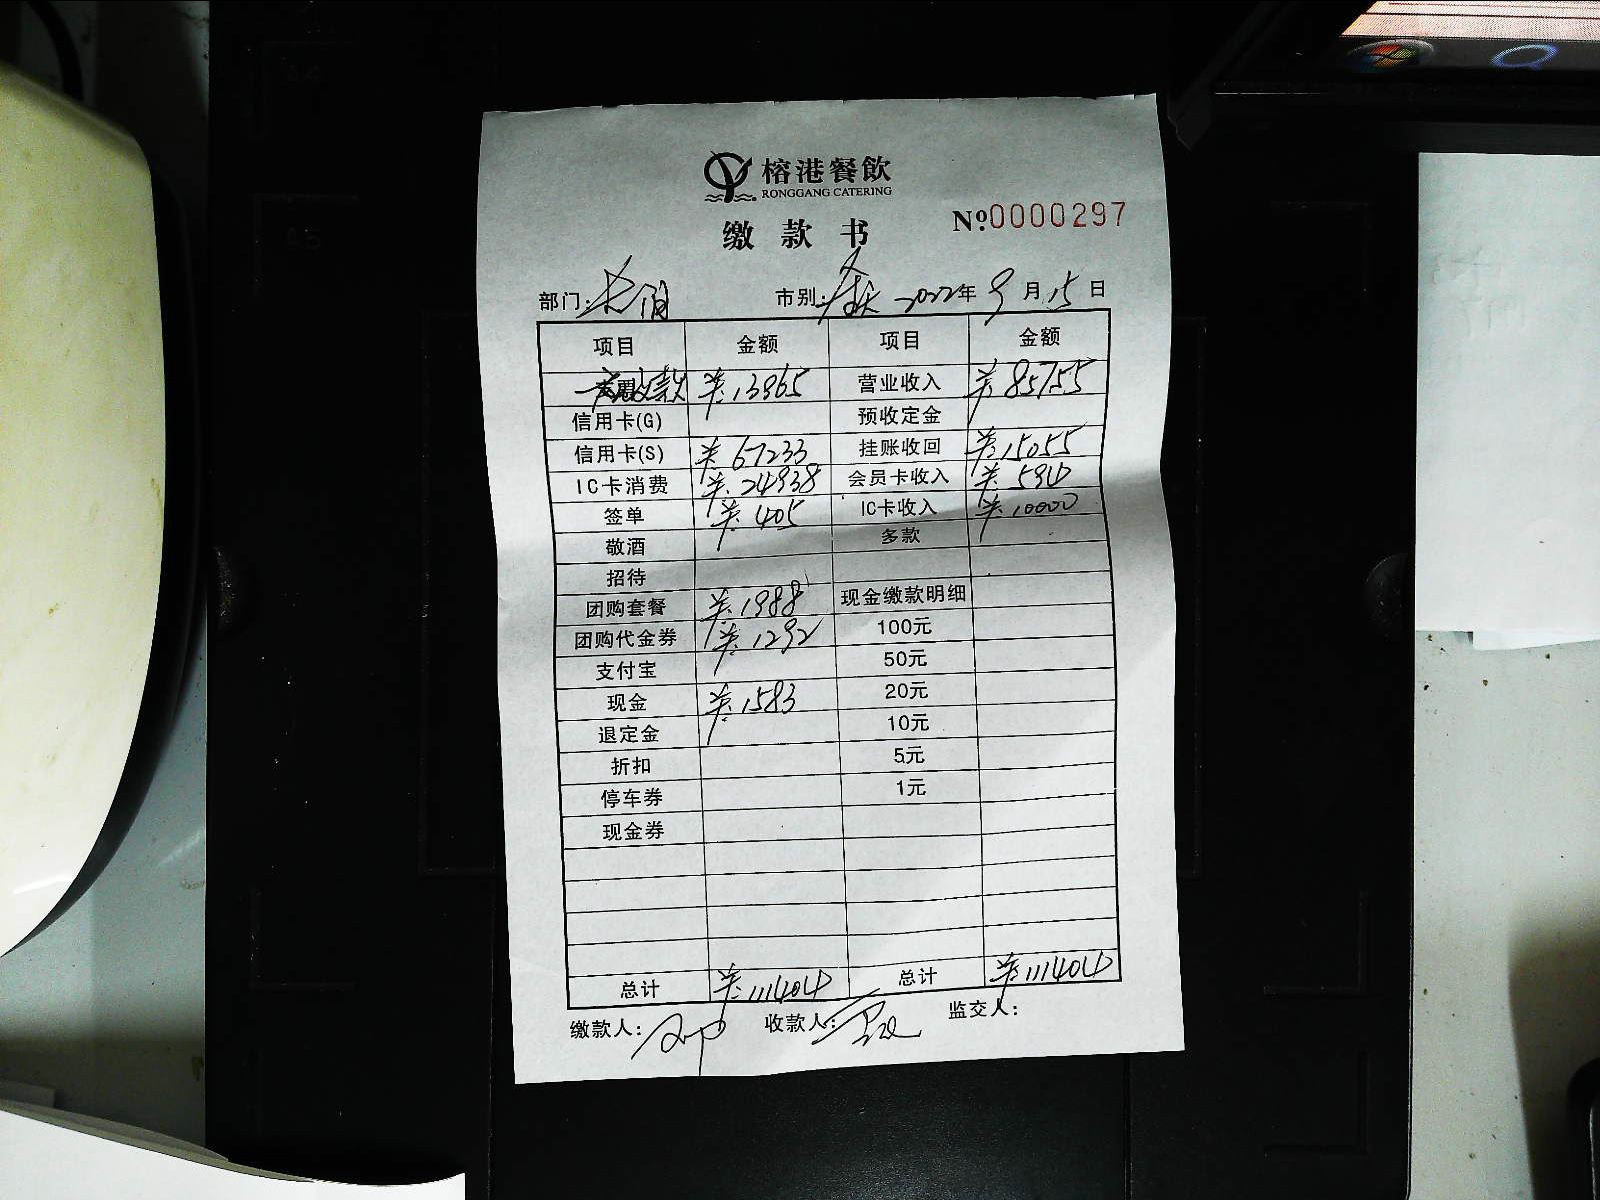 榕港餐飲
RONGGANG CATERING
缴款书 Nº0000297
部门: 市别: 2022年9月15日
项目 金额 项目 金额
收款 ¥:13965 营业收入 ¥:85755
信用卡(G) 预收定金
信用卡(S) ¥:67233 挂账收回 ¥:15055
IC卡消费 ¥:24938 会员卡收入 ¥:594
签单 ¥:405 IC卡收入 ¥:10000
敬酒 多款
招待
团购套餐 ¥:1988 现金缴款明细
团购代金券 ¥:1292 100元
支付宝 50元
现金 ¥:1583 20元
退定金 10元
折扣 5元
停车券 1元
现金券
总计 ¥:111404 总计 ¥:111404
缴款人: 收款人: 监交人: